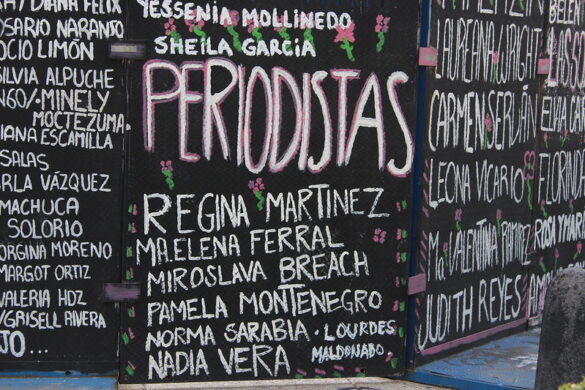 DIANA FELIX
ROSARIO NARANJO
ROCIO LIMÓN
SILVIA ALPUCHE
MINELY
MOCTEZUMA
DIANA ESCAMILLA
SALAS
VÁZQUEZ
MACHUCA
SOLORIO
GEORGINA MORENO
MARGOT ORTIZ
VALERIA HDZ
GRISELL RIVERA
YESSENIA MOLLINEDO
SHEILA GARCIA
PERIODISTAS
REGINA MARTINEZ
MA. ELENA FERRAL
MIROSLAVA BREACH
PAMELA MONTENEGRO
NORMA SARABIA · LOURDES
MALDONADO
NADIA VERA
LAUREANA WRIGHT
CARMEN SERDÁN
LEONA VICARIO
Ma VALENTINA RAMIREZ
JUDITH REYES
ROSA